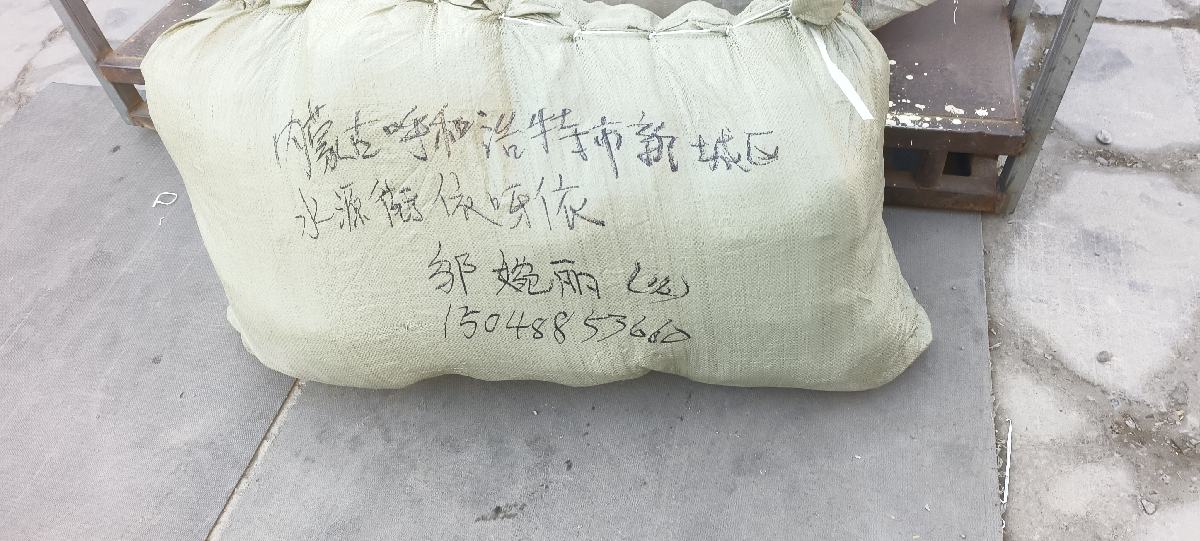 内蒙古呼和浩特市新城区
水源街依呀依
邹婉丽(收)
15048853660